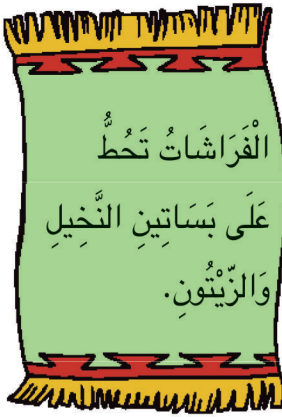 الْفَرَاشَاتُ تَحُطُّ
عَلَى بَسَاتِينِ النَّخِيلِ
وَالزَّيْتُونِ.